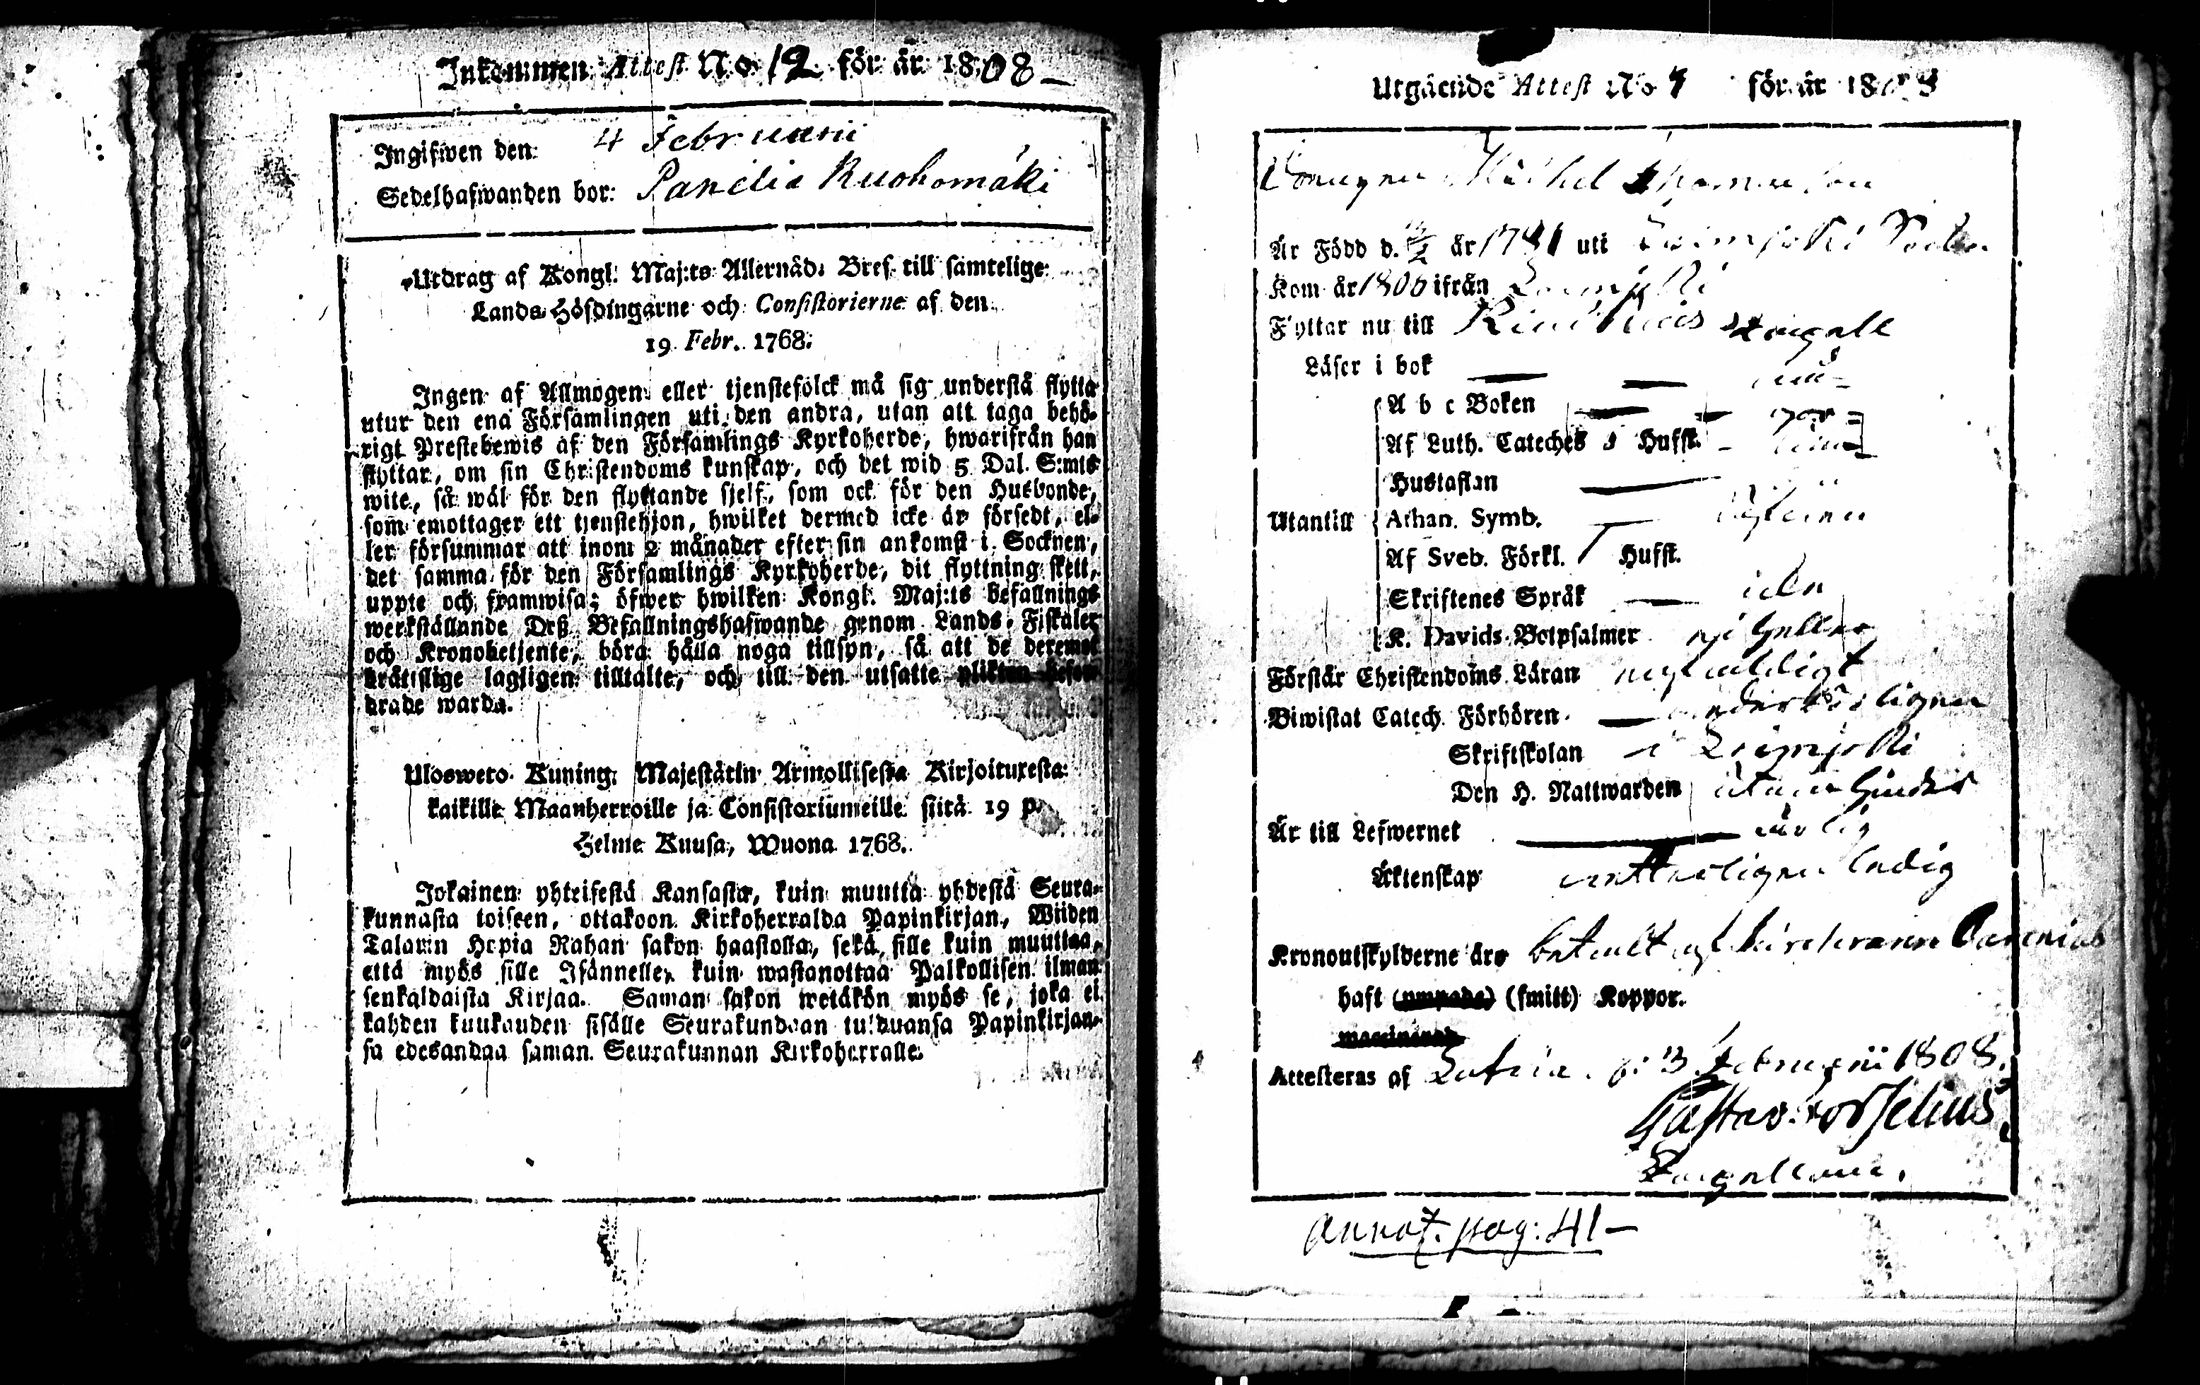 Inkommen Attest No. 12 för år 1808
Ingifwen den: 4 Februarii
Sedelhafwanden bor: Panelia Ruohomäki
Utdrag af Kongl. Maj:ts Allernåd. Bref till samtelige
Lands-Höfdingarne och Consistorierne af den
19 Febr. 1768.
Ingen af Allmogen eller tjenstefolck må sig understå flytta
utur den ena Församlingen uti den andra, utan att taga behö-
rigt Prestebewis af den Församlings Kyrkoherde, hwarifrån han
flyttar, om sin Christendoms kunskap, och det wid 5 Dal. S:mts
wite, så wäl för den flyttande sjelf, som ock för den Husbonde,
som emottager ett tjenstehjon, hwilket dermed icke är försedt, el-
ler försummar att inom 2 månader efter sin ankomst i Socknen,
det samma för den Församlings Kyrkoherde, dit flyttning skett,
uppte och framwisa; öfwer hwilken Kongl. Maj:ts befallnings
werkställande Deß Befallningshafwande genom Lands-Fiskaler
och Kronobetjente, böra hålla noga tillsyn, så att de deremot
brättslige lagligen tilltalte, och till den utsatte plikten befor-
drade warda.
Ulosweto Kuning. Majestätin Armollisesta Kirjoituxesta
kaikille Maanherroille ja Consistoriumeille siitä 19 p.
Helme Kuusa, Wuona 1768.
Jokainen yhteisestä Kansasta, kuin muutta yhdestä Seura-
kunnasta toiseen, ottakoon Kirkoherralda Papinkirjan, Wiiden
Talarin Hopia Rahan sakon haastolla, sekä sille kuin muuttaa,
että myös sille Isännelle, kuin wastanottaa Palkollisen ilman
senkaldaista Kirjaa. Saman sakon wetäkön myös se, joka ei
kahden kuukauden sisälle Seurakundaan tulduansa Papinkirjan-
sa edesandaa saman Seurakunnan Kirkoherralle.
Utgående Attest No för år 18
Drengen Michel
Är Född d. år 1781 uti Loimjoki Sockn
Kom år 1806 ifrån Loimjoki
Flyttar nu till Kiukais Capell
Läser i bok
A b c Boken
Af Luth. Cateches 5 Hufst.
Hustaflan
Utantill Athan. Symb.
Af Sveb. Förkl. Hufst.
Skriftenes Språk
K. Davids Botpsalmer ej heller
Förstår Christendoms Läran
Biwistat Catech. Förhören
Skriftskolan i Loimjoki
Den H. Nattwarden utan hinder
Är till Lefwernet ärlig
Äktenskap ledig
Kronoutskylderne äro betalt af
haft (smitt) Koppor.
Attesteras af Februarii 1808.
Gustav
annot. pag: 41